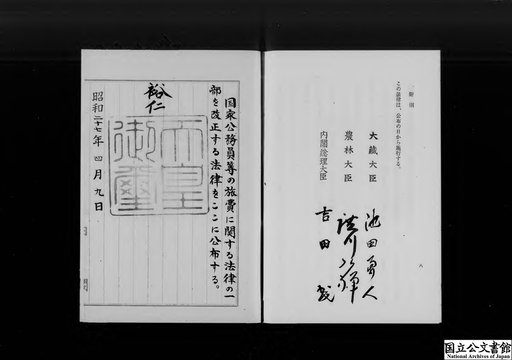 附則
この法律は、公布の日から施行する。
大蔵大臣 池田勇人
農林大臣 廣川弘禅
内閣総理大臣 吉田茂
国家公務員等の旅費に関する法律の一
部を改正する法律をここに公布する。
裕仁
天皇
御璽
昭和二十七年四月九日
国立公文書館
National Archives of Japan